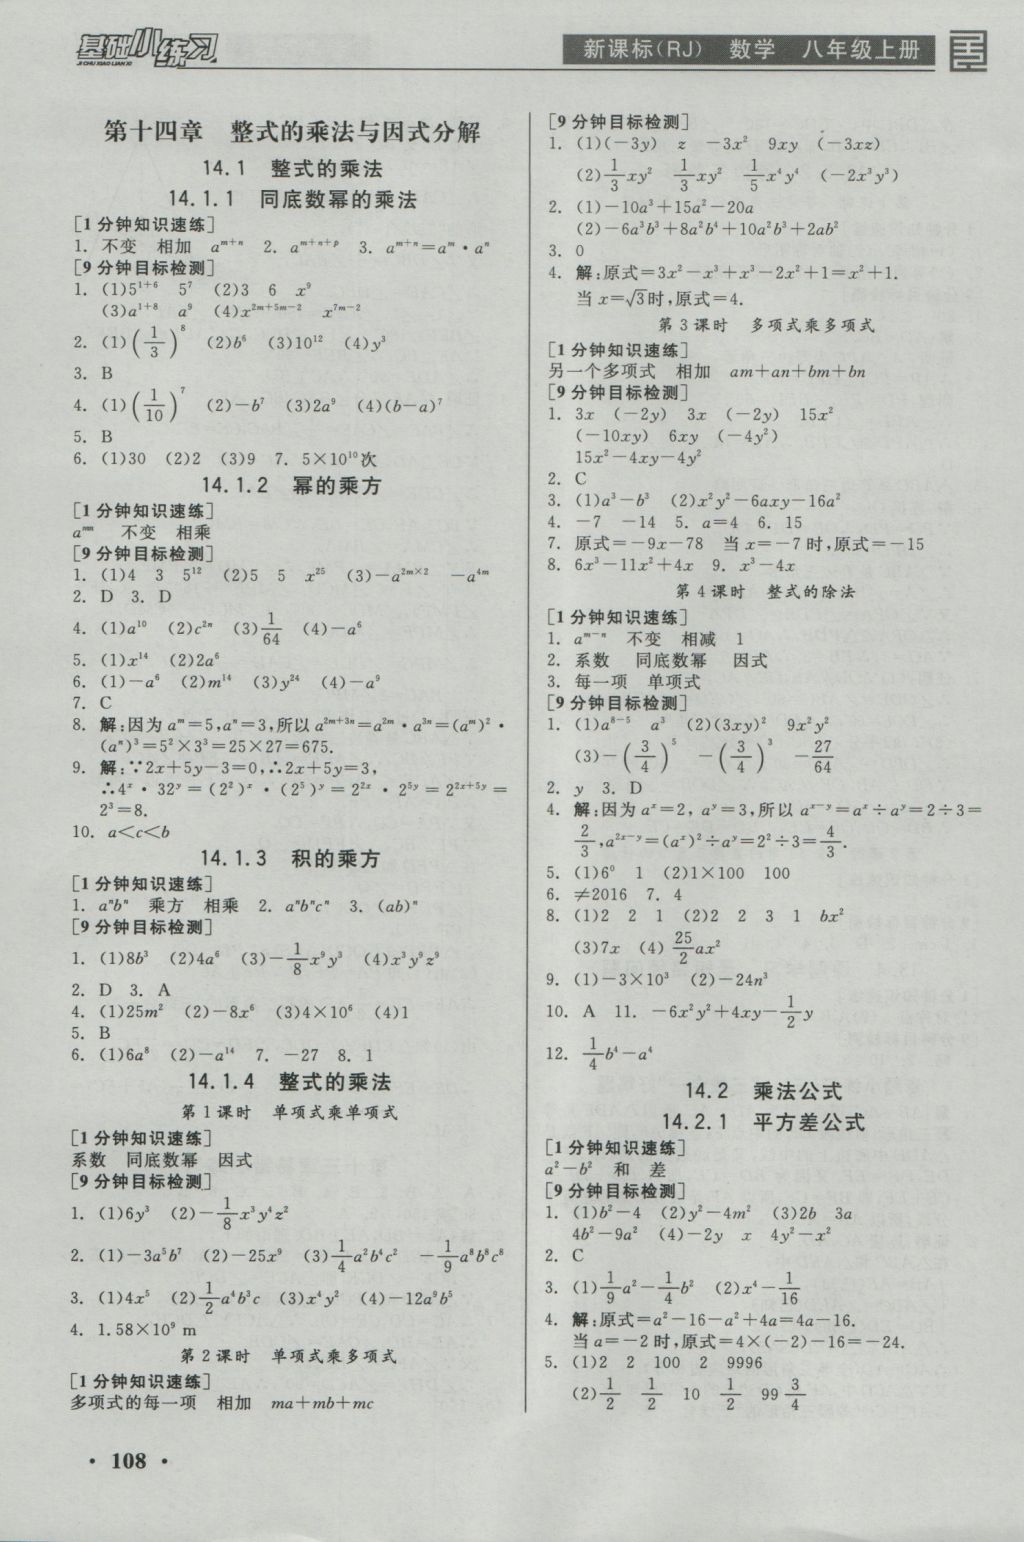 基础小练习
JI CHU XIAO LIAN XI
新课标(RJ) 数学 八年级上册
第十四章 整式的乘法与因式分解
14.1 整式的乘法
14.1.1 同底数幂的乘法
[1分钟知识速练]
1. 不变 相加 aᵐ⁺ⁿ 2. aᵐ⁺ⁿ⁺ᵖ 3. aᵐ⁺ⁿ=aᵐ·aⁿ
[9分钟目标检测]
1. (1)5¹⁺⁶ 5⁷ (2)3 6 x⁹
(3)a¹⁺⁸ a⁹ (4)x²ᵐ⁺⁵ᵐ⁻² x⁷ᵐ⁻²
2. (1)(1/3)⁸ (2)b⁶ (3)10¹² (4)y³
3. B
4. (1)(1/10)⁷ (2)-b⁷ (3)2a⁹ (4)(b-a)⁷
5. B
6. (1)30 (2)2 (3)9 7. 5×10¹⁰次
14.1.2 幂的乘方
[1分钟知识速练]
aᵐⁿ 不变 相乘
[9分钟目标检测]
1. (1)4 3 5¹² (2)5 5 x²⁵ (3)-a²ᵐˣ² -a⁴ᵐ
2. D 3. D
4. (1)a¹⁰ (2)c²ⁿ (3)1/64 (4)-a⁶
5. (1)x¹⁴ (2)2a⁶
6. (1)-a⁶ (2)m¹⁴ (3)y²⁴ (4)-a⁹
7. C
8. 解:因为aᵐ=5,aⁿ=3,所以a²ᵐ⁺³ⁿ=a²ᵐ·a³ⁿ=(aᵐ)²·
(aⁿ)³=5²×3³=25×27=675.
9. 解:∵2x+5y-3=0,∴2x+5y=3,
∴4ˣ·32ʸ=(2²)ˣ·(2⁵)ʸ=2²ˣ·2⁵ʸ=2²ˣ⁺⁵ʸ=
2³=8.
10. a<c<b
14.1.3 积的乘方
[1分钟知识速练]
1. aⁿbⁿ 乘方 相乘 2. aⁿbⁿcⁿ 3. (ab)ⁿ
[9分钟目标检测]
1. (1)8b³ (2)4a⁶ (3)-1/8x⁹y³ (4)x³y⁹z⁹
2. D 3. A
4. (1)25m² (2)-8x⁶ (3)4×10⁶ (4)1
5. B
6. (1)6a⁸ (2)-a¹⁴ 7. -27 8. 1
14.1.4 整式的乘法
第1课时 单项式乘单项式
[1分钟知识速练]
系数 同底数幂 因式
[9分钟目标检测]
1. (1)6y³ (2)-1/8x³y⁴z²
2. (1)-3a⁵b⁷ (2)-25x⁹ (3)1/4a²b⁴c² -1/9a⁸b⁸c⁸
3. (1)4x⁵ (2)1/2a⁴b³c (3)x⁴y² (4)-12a⁹b⁵
4. 1.58×10⁹ m
第2课时 单项式乘多项式
[1分钟知识速练]
多项式的每一项 相加 ma+mb+mc
· 108 ·
[9分钟目标检测]
1. (1)(-3y) z -3x² 9xy (-3xz)
(2)1/3xy² 1/3xy² 1/5x⁴y⁴ (-2x³y³)
2. (1)-10a³+15a²-20a
(2)-6a³b³+8a²b⁴+10a²b³+2ab²
3. 0
4. 解:原式=3x²-x³+x³-2x²+1=x²+1.
当x=√3时,原式=4.
第3课时 多项式乘多项式
[1分钟知识速练]
另一个多项式 相加 am+an+bm+bn
[9分钟目标检测]
1. 3x (-2y) 3x (-2y) 15x²
(-10xy) 6xy (-4y²)
15x²-4xy-4y²
2. C
3. (1)a³-b³ (2)x²y²-6axy-16a²
4. -7 -14 5. a=4 6. 15
7. 原式=-9x-78 当x=-7时,原式=-15
8. 6x³-11x²+4x 9. x³-4x
第4课时 整式的除法
[1分钟知识速练]
1. aᵐ⁻ⁿ 不变 相减 1
2. 系数 同底数幂 因式
3. 每一项 单项式
[9分钟目标检测]
1. (1)a⁸⁻⁵ a³ (2)(3xy)² 9x²y²
(3)-(3/4)⁵ -(3/4)³ -27/64
2. y 3. D
4. 解:因为aˣ=2, aʸ=3,所以aˣ⁻ʸ=aˣ÷aʸ=2÷3=
2/3,a²ˣ⁻ʸ=(aˣ)²÷aʸ=2²÷3=4/3.
5. (1)6⁰ 1 (2)1×100 100
6. ≠2016 7. 4
8. (1)2 2 1 (2)2 2 3 1 bx²
(3)7x (4)25/2ax²
9. (1)-3×10³ (2)-24n³
10. A 11. -6x²y²+4xy-1/2y
12. 1/4b⁴-a⁴
14.2 乘法公式
14.2.1 平方差公式
[1分钟知识速练]
a²-b² 和 差
[9分钟目标检测]
1. (1)b²-4 (2)y²-4m² (3)2b 3a
4b²-9a² (4)-2y x 4y²-x²
2. C
3. (1)1/9a²-1/4b² (2)x⁴-1/16
4. 解:原式=a²-16-a²+4a=4a-16.
当a=-2时,原式=4×(-2)-16=-24.
5. (1)2 2 100 2 9996
(2)1/2 1/2 10 1/2 99 3/4